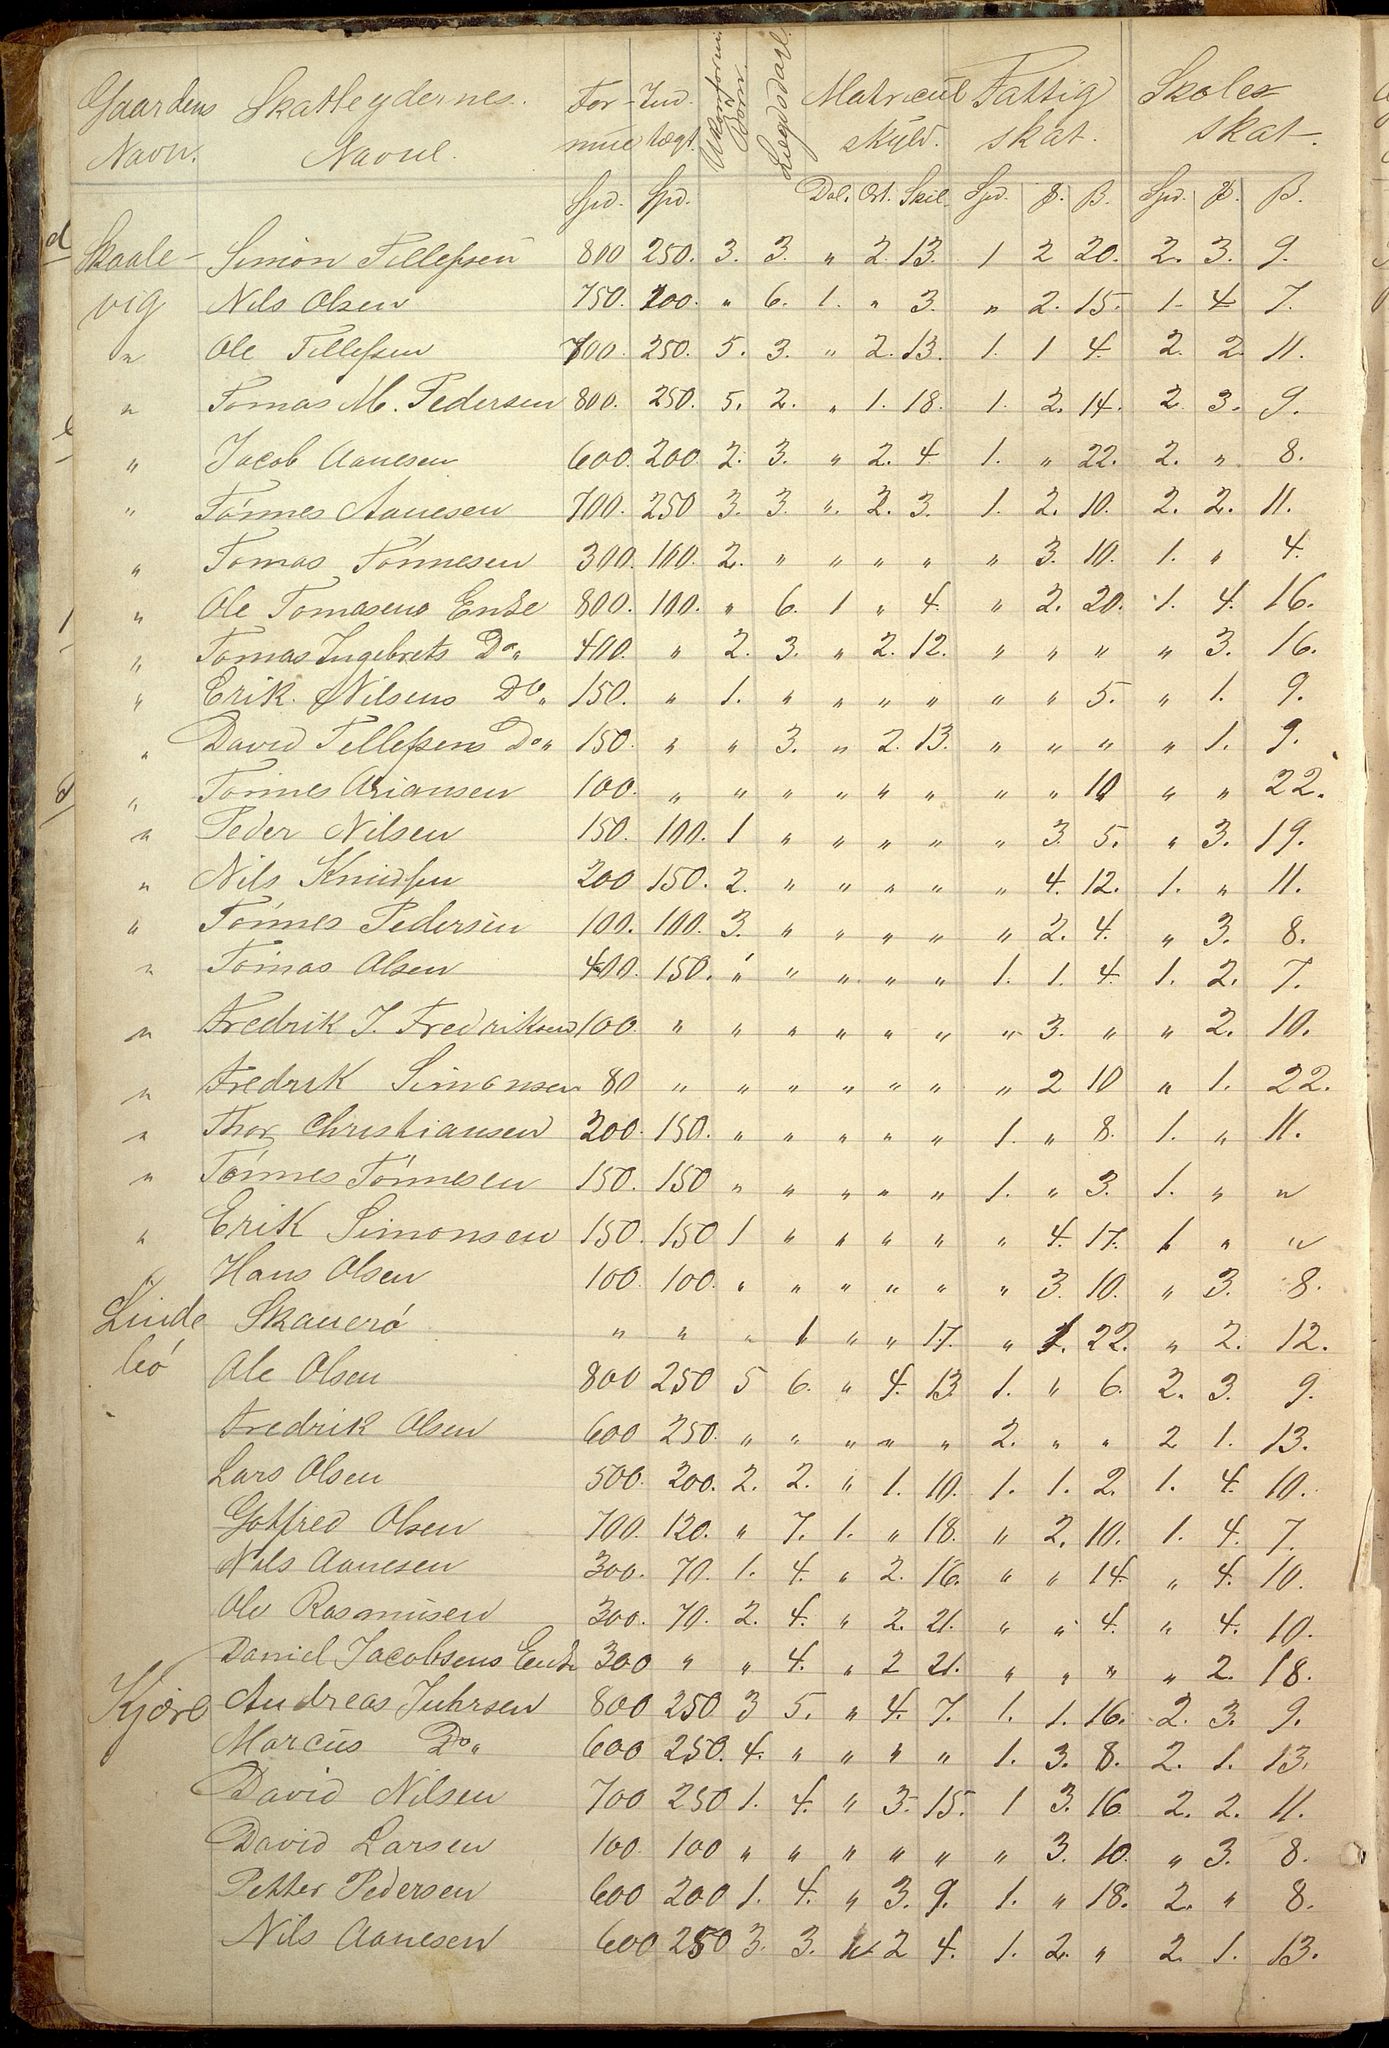 Gaardens Navn. Skatteydernes Navne. Formue Indtægt. Ukonform. Börn. Lægdsdagl. Matricul skyld. Fattig skat. Skoleskat.
Spd. Spd. Dal. Ort. Skil. Spd. β. Spd. β.
Skaale- Simon Tellefsen 800 250. 3. 3. " 2. 13. 1 2 20. 2. 3. 9.
vig Nils Olsen 750. 200. " 6. 1. " 3. " 2. 15. 1. 4 7.
" Ole Tellefsen 700. 250. 5. 3. " 2. 13. 1. 1 4. 2. 2. 11.
" Tomas M. Pedersen 800. 250. 5. 2. " 1. 18. 1. 2. 14. 2. 3. 9.
" Jacob Aanesen 600. 200. 2. 3. " 2. 4. 1. " 22. 2. " 8.
" Tönnes Aanesen 700. 250 3. 3. " 2. 3. 1. 2. 10. 2. 2. 11.
" Tomas Tönnesen 300. 100. 2. " " " " " 3. 10. 1. " 4.
" Ole Tomasens Enke 800. 100. " 6. 1 " 4. " 2. 20. 1. 4. 16.
" Tomas Ingebrets Do " 400. " 2. 3. " 2. 12. " " " " 3. 16.
" Erik Nilsens Do " 150. " 1. " " " " " " 5. " 1. 9.
" David Tellefsens Do " 150. " " 3. " 2. 13. " " " " 1. 9.
" Tönnes Ariansen 100. " " " " " " " " 10 " " 22.
" Peder Nilsen 150. 100. 1 " " " " " 3. 5. " 3. 19.
" Nils Knudsen 200 150. 2. " " " " " 4. 12. 1. " 11.
" Tönnes Pedersen 100. 100. 3. " " " " " 2. 4. " 3. 8.
" Tomas Olsen 400. 150. " " " " " 1. 1. 4. 1. 2. 7.
" Fredrik J. Fredriksen 100. " " " " " " " 3. " " 2. 10.
" Fredrik Simonsen 80 " " " " " " " 2 10 " 1. 22.
" Thor Christiansen 200. 150. " " " " " 1. " 8. 1. " 11.
" Tönnes Tönnesen 150. 150 " " " " " 1. " 3. 1. " "
" Erik Simonsen 150. 150 1 " " " " " 4. 17. 1 " "
" Hans Olsen 100. 100. " " " " " " 3. 10. " 3. 8.
Linde Skauerö " " " 1 " " 17. " 1. 22. " 2. 12.
bö Ole Olsen 800 250 5 6. " 4. 13 1. " 6. 2. 3. 9.
Fredrik Olsen 600 250. " " " " " 2. " " 2 1. 13.
Lars Olsen 500. 200. 2. 2. " 1. 10. 1. 1. 2. 1. 4. 10.
Gotfred Olsen 700. 120. " 7. 1. " 18. " 2. 10. 1. 4. 7.
Nils Aanesen 300. 70. 1. 4. " 2. 16. " " 14. " 4. 10.
Ole Rasmusen 300. 70. 2. 4. " 2. 21. " " 4. " 4. 10.
Daniel Jacobsens Enke 300 " " 4. " 2 21. " " " " 2. 18.
Kjöre Andreas Juhrsen 800 250 3 5. " 4. 7. 1. 1. 16. 2. 3. 9.
Marcus Do " 600 250. 4. " " " " 1. 3. 8. 2. 1. 13.
David Nilsen 700 250 1. 4. " 3. 15. 1 3. 16 2. 2. 11.
David Larsen 100. 100 " " " " " " 3. 10. " 3. 8.
Petter Pedersen 600 200 1. 4. " 3. 9. 1. " 18. 2. " 8.
Nils Aanesen 600 250 3. 3. " 2 4. 1. 2. " 2. 1. 13.